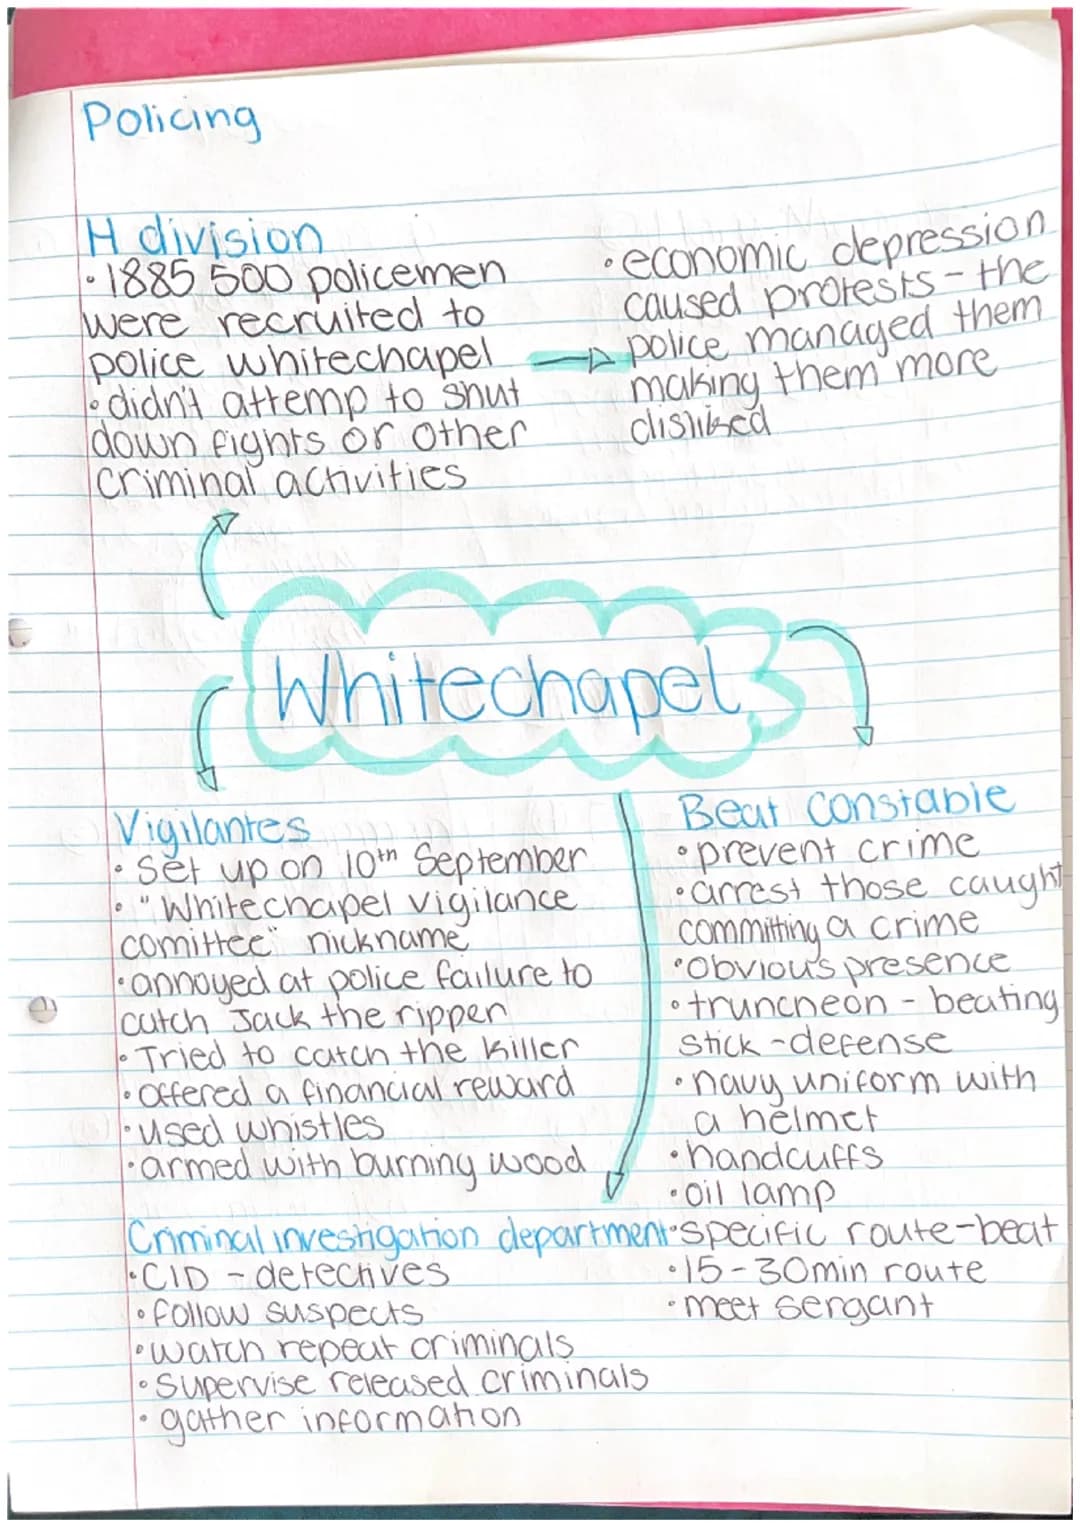 Policing
H division
• 1885 500 policemen
were recruited to
police whitechapel
• didn't attemp to shut
down fights or other
criminal activities
• economic depression
caused protests - the
police managed them
making them more
disliked
Whitechapel
Vigilantes
• Set up on 10th September
• "Whitechapel vigilance
comittee" nickname
• annoyed at police failure to
catch Jack the ripper
• Tried to catch the killer
• offered a financial reward
• used whistles
• armed with burning wood
Beat Constable
• prevent crime
• arrest those caught
committing a crime
• obvious presence
• truncheon - beating
stick - defense
• navy uniform with
a helmet
• handcuffs
• oil lamp
• specific route-beat
• 15-30min route
• meet sergant
Criminal investigation department
• CID - detectives
• follow suspects
• watch repeat criminals
• supervise released criminals
• gather information